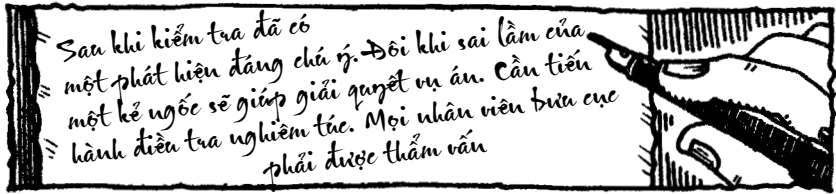 Sau khi kiểm tra đã có
một phát hiện đáng chú ý. Đôi khi sai lầm của
một kẻ ngốc sẽ giúp giải quyết vụ án. Cần tiến
hành điều tra nghiêm túc. Mọi nhân viên bưu cục
phải được thẩm vấn